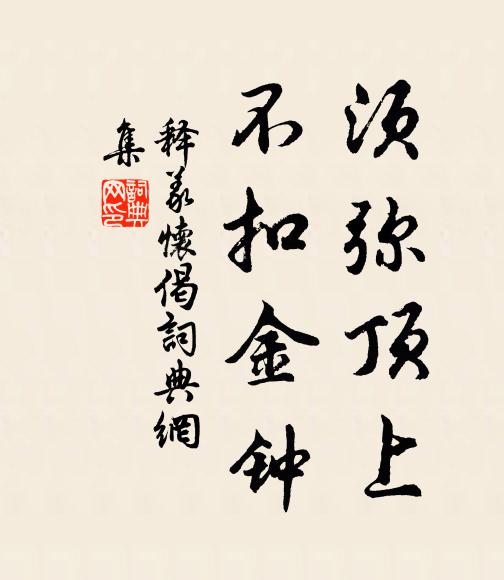 须弥顶上
不扣金钟
释义怀偈詞典網
集
詞典
网印